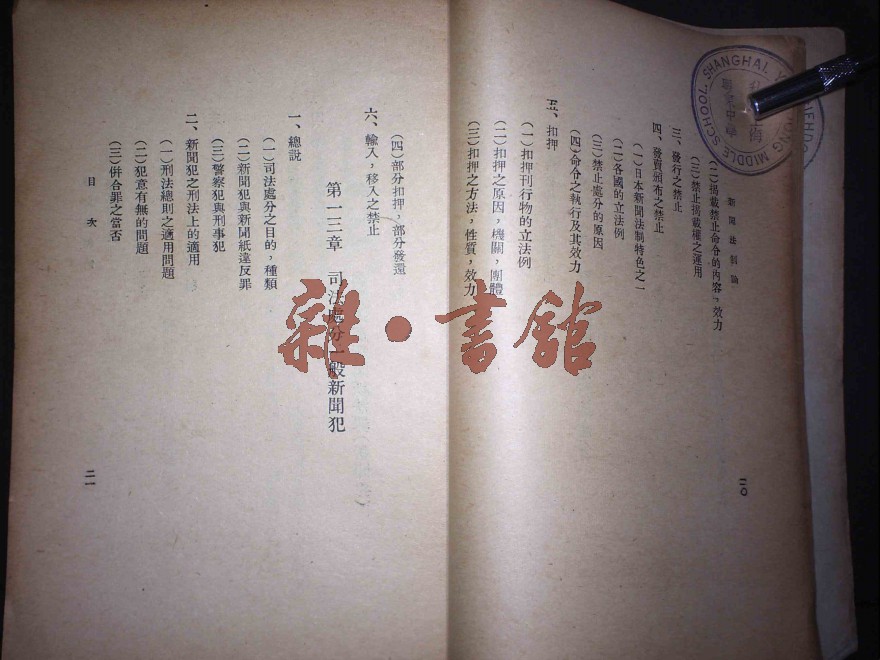 新聞法制論
(二)揭載禁止命令的內容，效力
(三)禁止揭載權之運用
三、發行之禁止
四、發賣頒布之禁止
(一)日本新聞法制特色之一
(二)各國的立法例
(三)禁止處分的原因
(四)命令之執行及其效力
五、扣押
(一)扣押刊行物的立法例
(二)扣押之原因，機關，團體
(三)扣押之方法，性質，效力
二〇
(四)部分扣押，部分發還
六、輸入，移入之禁止
第一三章 司法處分一般新聞犯
一、總說
(一)司法處分之目的，種類
(二)新聞犯與新聞紙違反罪
(三)警察犯與刑事犯
二、新聞犯之刑法上的適用
(一)刑法總則之適用問題
(二)犯意有無的問題
(三)併合罪之當否
目次
二一
雜·書館
SHANGHAI
MIDDLE SCHOOL